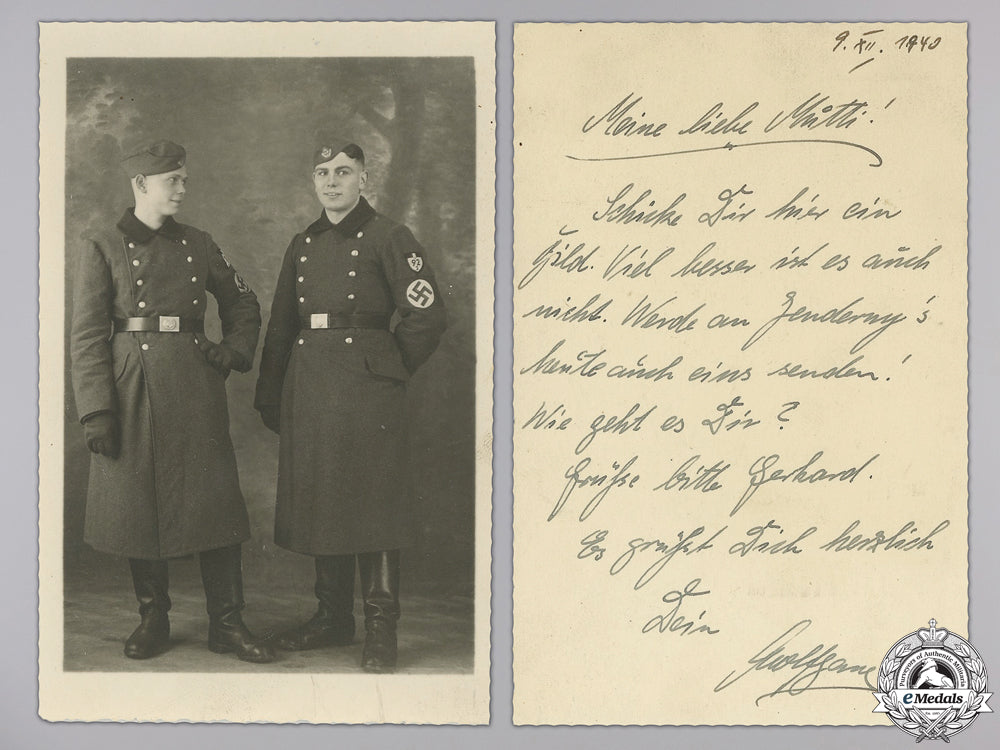 92
9. XII. 1940
Meine liebe Mutti!
Schicke Dir hier ein
Bild. Viel besser ist es auch
nicht. Werde an Zenderny's
heute auch eins senden!
Wie geht es Dir?
Grüße bitte Gerhard.
Es grüßt Dich herzlich
Dein
Wolfgang
Purveyors of Authentic Militaria
eMedals